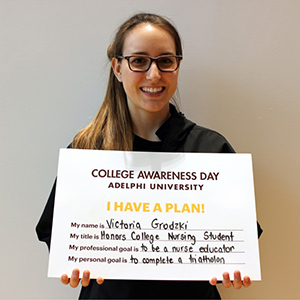 COLLEGE AWARENESS DAY
ADELPHI UNIVERSITY
I HAVE A PLAN!
My name is Victoria Grodzki
My title is Honors College Nursing Student
My professional goal is to be a nurse educator
My personal goal is to complete a triathalon